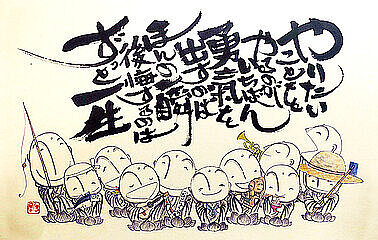 やりたい
ことを
やるのが
いちばん
勇気を
出すのは
ほんの一瞬
後悔するのは
ずっと一生